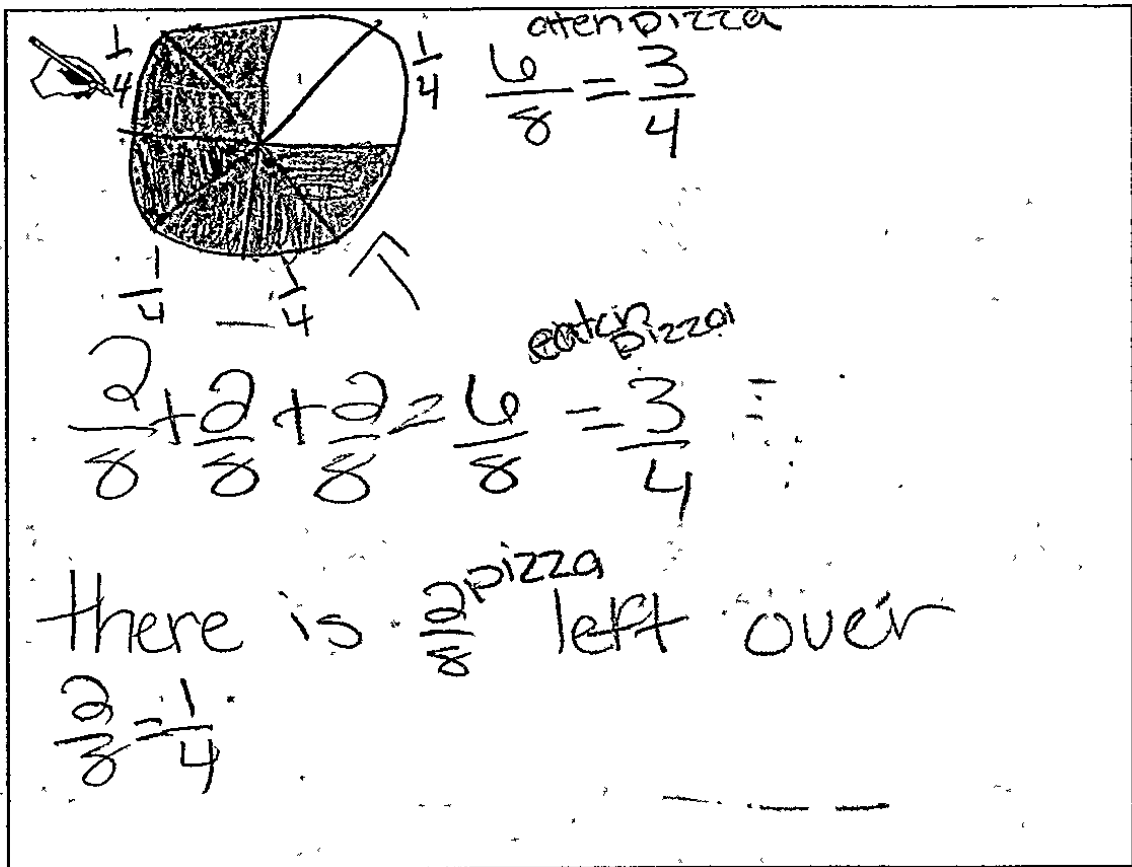 1/4 1/4 atenpizza
6/8 = 3/4
1/4 1/4
eaten pizza
2/8 + 2/8 + 2/8 = 6/8 = 3/4 =
there is 2/8 pizza left over
2/8 = 1/4